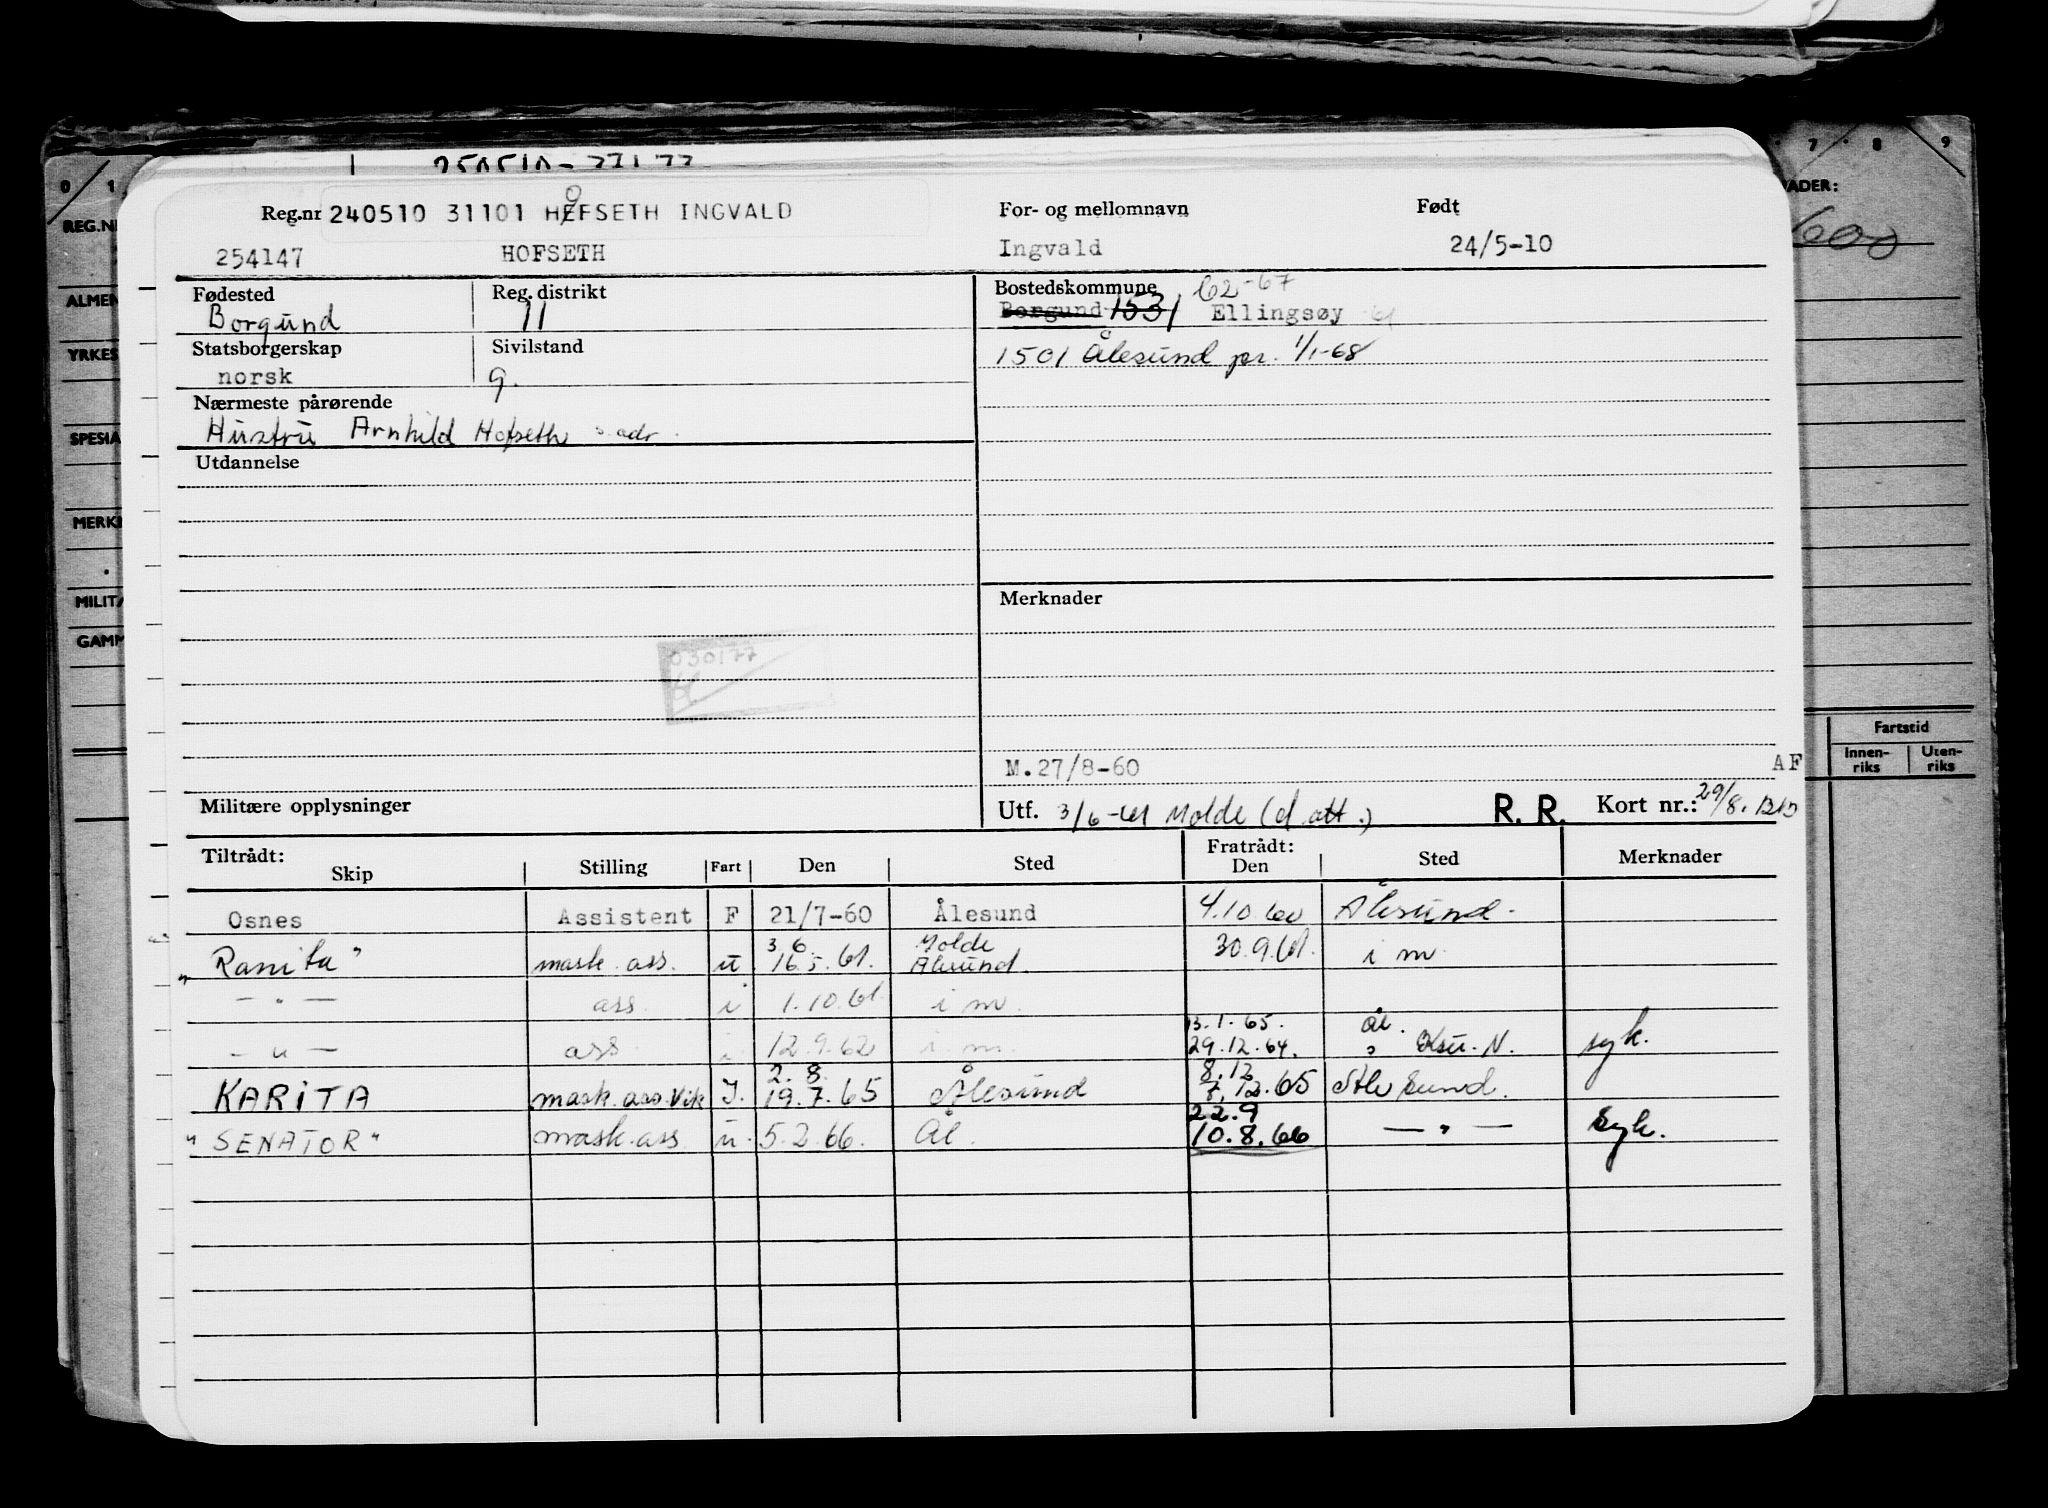 Reg.nr 240510 31101 HØFSETH INGVALD
o
For- og mellomnavn Født
254147 HOFSETH Ingvald 24/5-10
Fødested Reg. distrikt Bostedskommune 62-67
Borgund 71 Borgund 1531 Ellingsøy 61
Statsborgerskap Sivilstand 1501 Ålesund pr. 1/1-68
norsk g.
Nærmeste pårørende
Hustru Arnhild Hofseth s. adr.
Utdannelse
Merknader
030177
M.27/8-60 AF
Militære opplysninger Utf. 3/6-61 Molde (d. att.) R. R. Kort nr.: 29/8.
Tiltrådt: Fratrådt:
Skip Stilling Fart Den Sted Den Sted Merknader
Osnes Assistent F 21/7-60 Ålesund 4.10.60 Ålesund.
3.6. Molde
"Ranita" mask. ass. u 16.5.61. Ålesund 30.9.61. i m
— " — ass. i 1.10.61 i m.
13.1.65. Ål.
— " — ass i 12.9.62 i m. 29.12.64. " Ksu. N. syk.
2.8. 8.12
KARITA mask. ass. Vik I. 19.7.65 Ålesund 7.12.65 Ålesund.
22.9
"SENATOR" mask. ass u. 5.2.66. Ål. 10.8.66 — " — Syk.
0 1 7 8 9
REG.N
ALMEN
YRKES
SPESIA
MERK
MILITÆ
GAMM
ADER:
600
Fartstid
Innen-riks Uten-riks